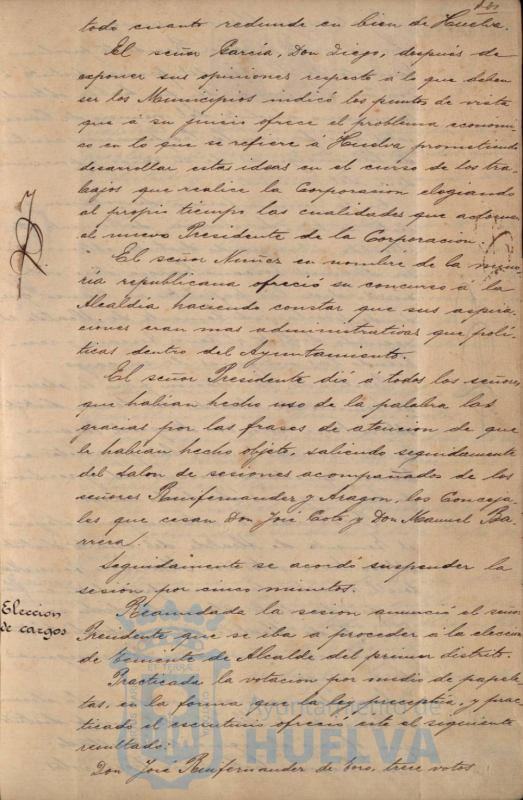 todo cuanto redunde en bien de Huelva.
El señor García, Don Diego, después de
exponer sus opiniones respecto á lo que deben
ser los Municipios indicó los puntos de vista
que á su juicio ofrece el problema económi-
co en lo que se refiere á Huelva prometiendo
desarrollar estas ideas en el curso de los tra-
bajos que realice la Corporacion elogiando
al propio tiempo las cualidades que adornan
el nuevo Presidente de la Corporacion.
El señor Nuñez en nombre de la mino-
ría republicana ofreció su concurso á la
Alcaldía haciendo constar que sus aspira-
ciones eran mas administrativas que polí-
ticas dentro del Ayuntamiento.
El señor Presidente dió á todos los señores
que habian hecho uso de la palabra las
gracias por las frases de atencion de que
le habian hecho objeto, saliendo seguidamente
del salon de sesiones acompañados de los
señores Renfernander y Aragon, los Conceja-
les que cesan Don José Coto y Don Manuel Ba-
rrera.
Seguidamente se acordó suspender la
sesión por cinco minutos.
Eleccion
de cargos
Reanudada la sesion anunció el señor
Presidente que se iba a proceder á la eleccion
de teniente de Alcalde del primer distrito.
Practicada la votacion por medio de papele-
tas, en la forma que la ley preceptúa, y prac-
ticado el escrutinio ofreció este el siguiente
resultado:
Don José Renfernander de toro, trece votos
Ayuntamiento de
HUELVA